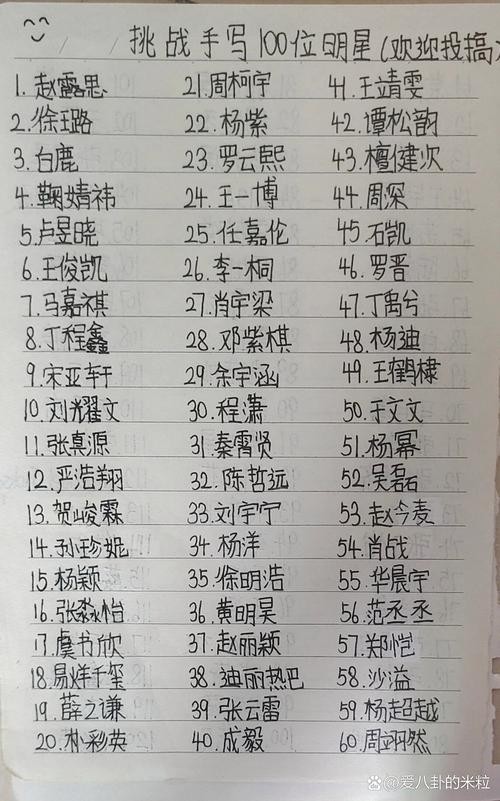 挑战手写100位明星(欢迎投搞
1.赵露思 21.周柯宇 41.王靖雯
2.徐璐 22.杨紫 42.谭松韵
3.白鹿 23.罗云熙 43.檀健次
4.鞠婧祎 24.王一博 44.周深
5.卢昱晓 25.任嘉伦 45.石凯
6.王俊凯 26.李一桐 46.罗晋
7.马嘉祺 27.肖宇梁 47.丁禹兮
8.丁程鑫 28.邓紫棋 48.杨迪
9.宋亚轩 29.余宇涵 49.王鹤棣
10.刘耀文 30.程潇 50.于文文
11.张真源 31.秦霄贤 51.杨幂
12.严浩翔 32.陈哲远 52.吴磊
13.贺峻霖 33.刘宇宁 53.赵今麦
14.孙珍妮 34.杨洋 54.肖战
15.杨颖 35.徐明浩 55.华晨宇
16.张淼怡 36.黄明昊 56.范丞丞
17.虞书欣 37.赵丽颖 57.郑恺
18.易烊千玺 38.迪丽热巴 58.沙溢
19.薛之谦 39.张云雷 59.杨超越
20.朴彩英 40.成毅 60.周翊然
@爱八卦的米粒